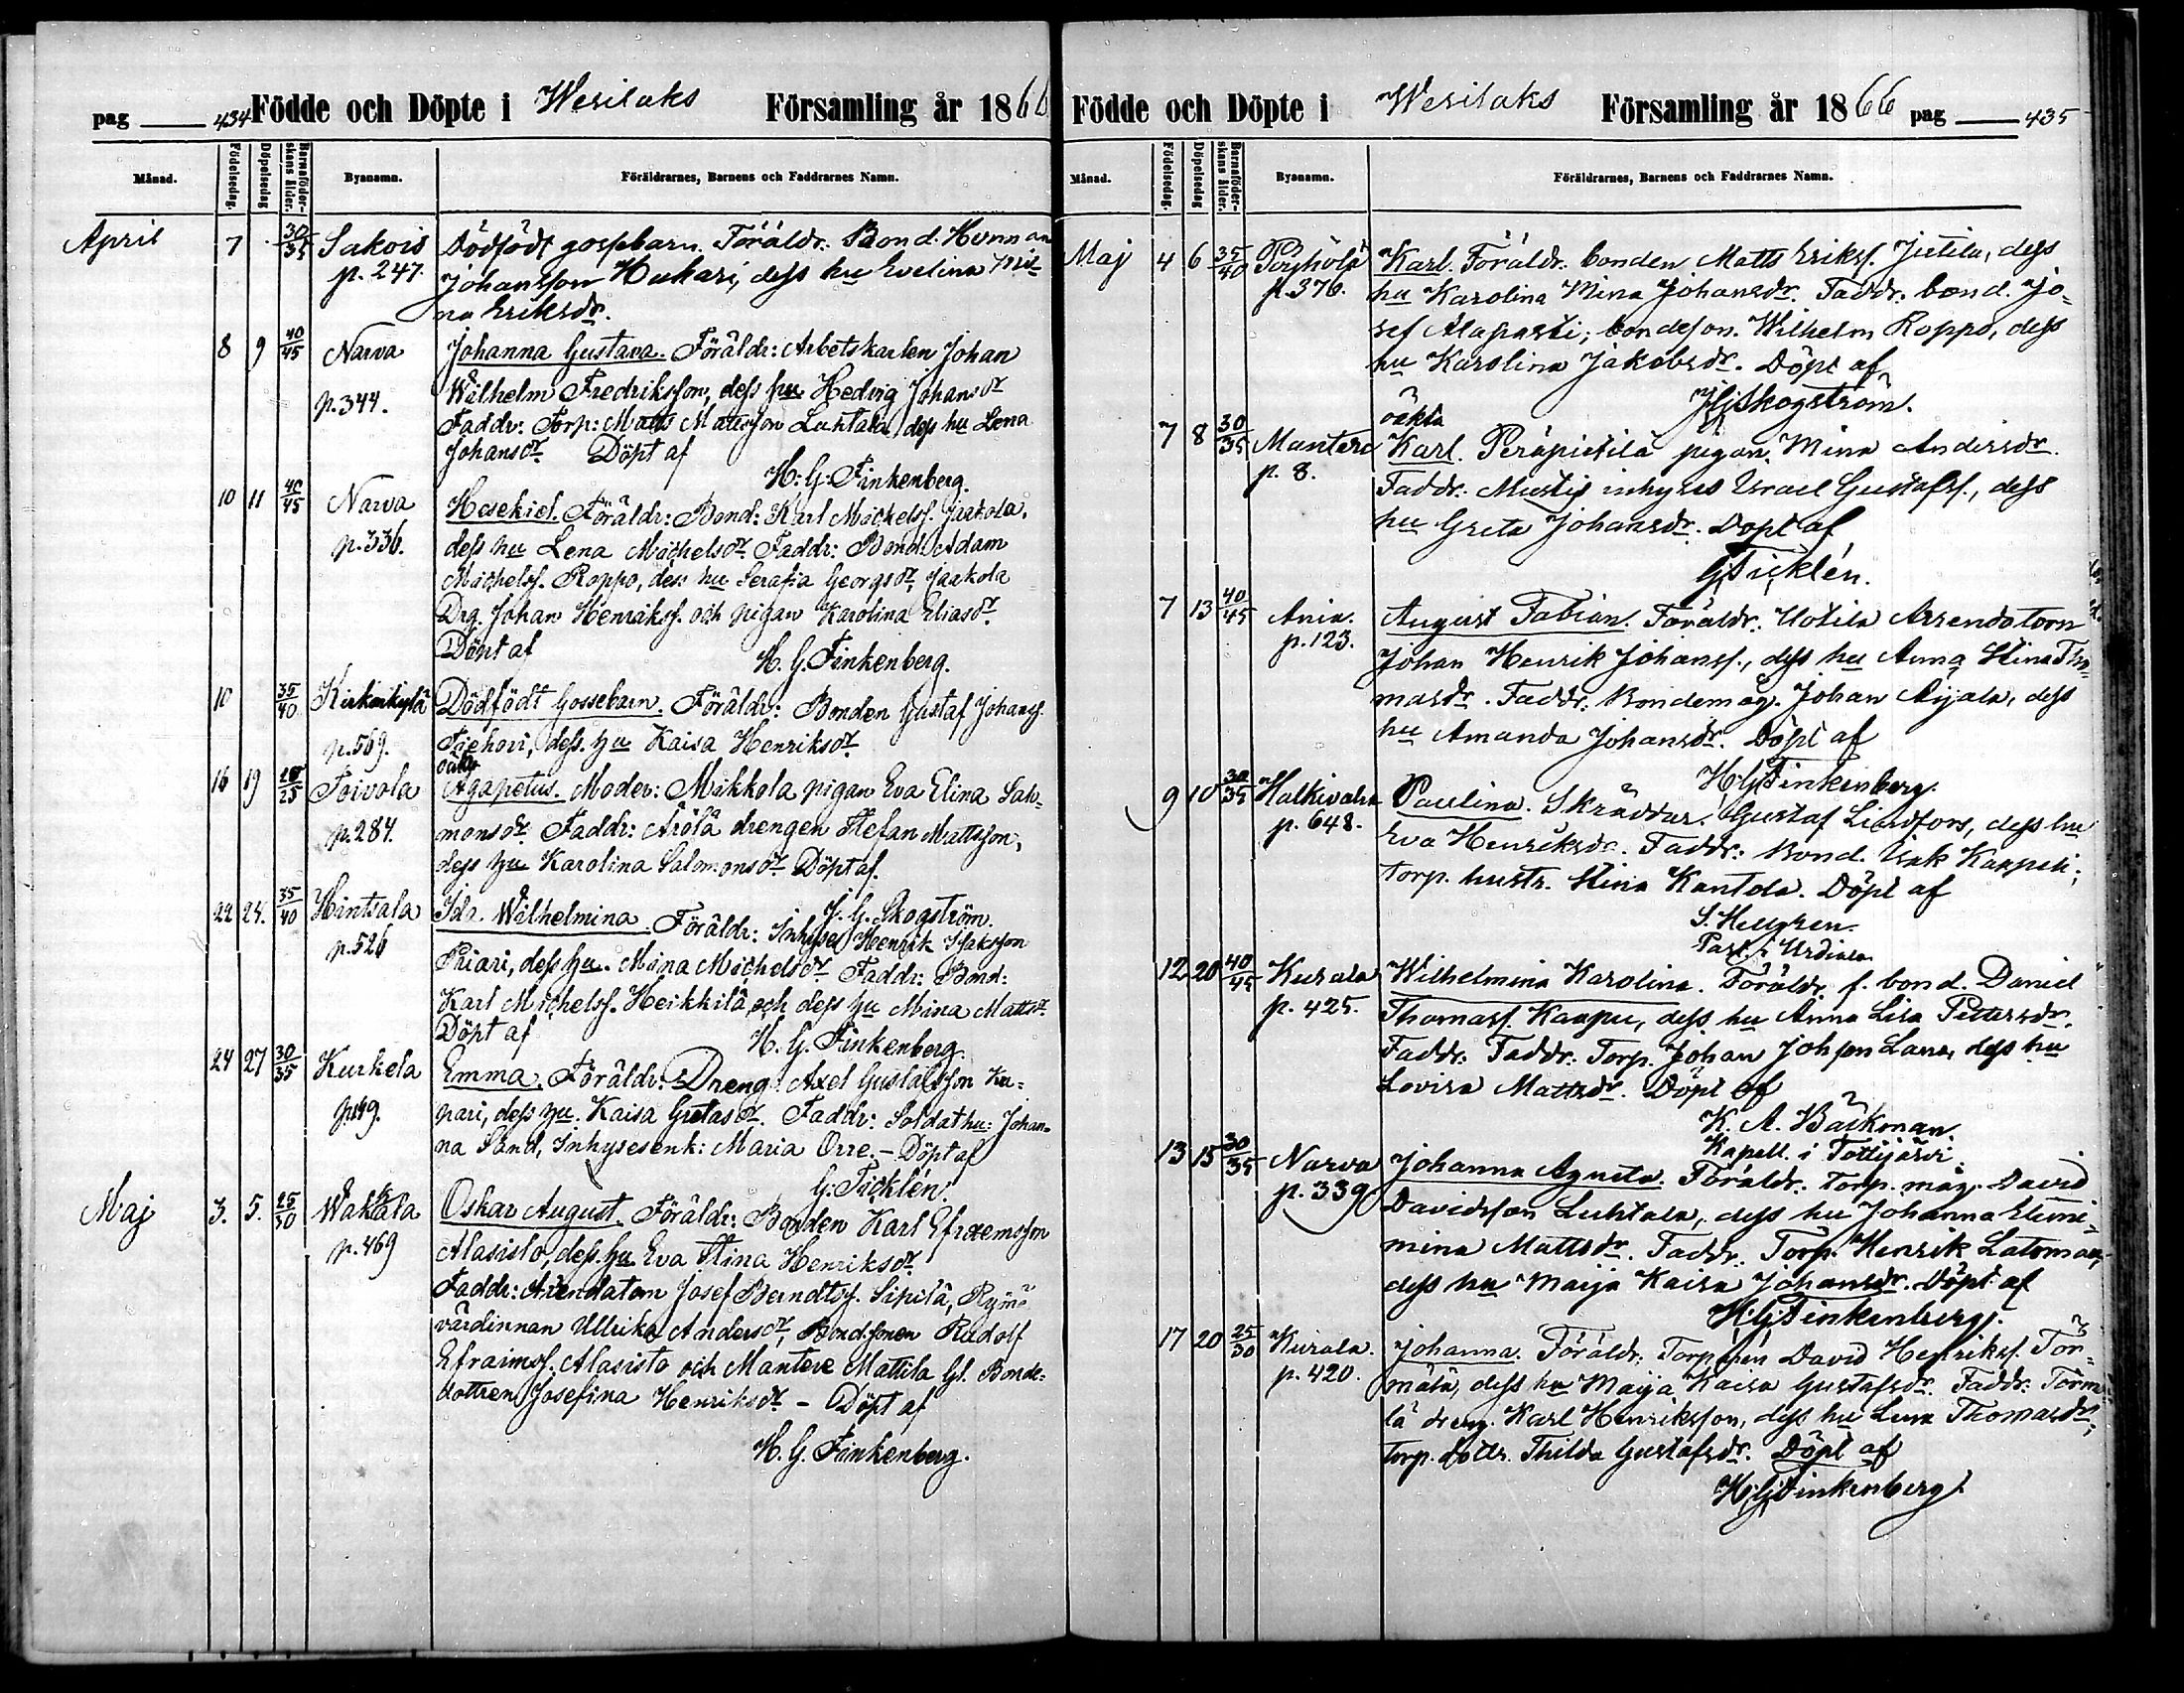 pag 434 Födde och Döpte i Wesilaks Församling år 1866
Månad. Födelsedag. Döpelsedag Barnaföderskans ålder. Byanamn. Föräldrarnes, Barnens och Faddrarnes Namn.
April 7 30/35 Sakois Dödfödt gossebarn. Föräldr: Bond. Herman
p. 247. Johansson Huhari, dess hu Evelina Mi-
na Eriksdr.
8 9 40/45 Narva Johanna Gustava. Föräldr: Arbetskarlen Johan
Wilhelm Fredriksson, dess hu Hedvig Johansdr
p. 344. Faddr: Torp: Matts Mattsson Luhtala, dess hu Lena
Johansdr. Döpt af
H. G. Finkenberg.
10 11 40/45 Narva Hesekiel. Föräldr: Bond: Karl Mickelsf. Jaakola,
p. 336. dess hu Lena Michelsdr Faddr: Bond: Adam
Michelsf. Roppo, dess hu Serafia Georgsdr, Jaakola
Drg. Johan Henriksf. och pigan Karolina Eliasdr.
Döpt af
H. G. Finkenberg.
10 35/40 Kirkonkylä Dödfödt Gossebarn. Föräldr: Bonden Gustaf Johansf.
p. 569. dess hu Kaisa Henriksdr.
oäkta
16 19 20/25 Toivola Agapetus. Moder: Mikkola pigan Eva Elina Salo-
p. 284. monsdr. Faddr: Arölä drengen Stefan Mattsson,
dess hu Karolina Salomonsdr Döpt af.
J. G. Skogström.
22 24. 35/40 Hintsala Ida Wilhelmina. Föräldr: Inhyses Henrik Isaksson
p. 526 Priari, dess hu. Mina Michelsdr Faddr: Bond:
Karl Michelsf. Heikkilä och dess hu Mina Mattsdr.
Döpt af
H. G. Finkenberg.
24 27 30/35 Kurkela Emma. Föräldr: Dreng: Axel Gustafsson Ku-
pari, dess hu. Kaisa Gustafsdr. Faddr: Soldathu: Johan-
na Sand, Inhysesenk: Maria Orre. - Döpt af
G: Ticklén.
Maj 3. 5. 25/30 Wakkala Oskar August. Föräldr: Bonden Karl Efraemsson
p. 469 Alasisto, dess hu Eva Stina Henriksdr.
Faddr: Arendatorn Josef Berndtsf. Sipilä,
värdinnan Ullrika Andersdr, Bondsonen Rudolf
Efraimsf. Alasisto och Mantere Mattila Gl. Bonde-
dottren Josefina Henriksdr - Döpt af
H. G. Finkenberg.
Födde och Döpte i Wesilaks Församling år 1866 pag 435
Månad. Födelsedag. Döpelsedag Barnaföderskans ålder. Byanamn. Föräldrarnes, Barnens och Faddrarnes Namn.
Maj 4 6 35/40 Pöyhölä Karl. Föräldr: bonden Matts Eriksf. Jutila, dess
p. 376. hu Karolina Mina Johansdr. Faddr: bond. Jo-
sef Alapasti; bondeson. Wilhelm Roppo, dess
hu Karolina Jakobsdr. Döpt af
JG Skogström.
oäkta
7 8 30/35 Mantere Karl. Peräpietilä pigan. Mina Andersdr.
p. 8. Faddr: inhyses Israel Gustafsf., dess
hu Greta Johansdr. Döpt af
G Ticklén.
7 13 40/45 Ania. August Fabian. Föräldr: Uotila Arrendatorn
p. 123. Johan Henrik Johansf., dess hu Anna Stina Tho-
masdr. Faddr: Bondemåg. Johan Äijälä, dess
hu Amanda Johansdr. Döpt af
HG Finkenberg.
9 10 30/35 Halkivaha Paulina. Skräddar. Gustaf Lindfors, dess hu
p. 648. Eva Henriksdr. Faddr: Bond. Isak
torp. hustr. Stina Kantola. Döpt af
S. Hellgren.
Past. i Urdiala
12 20 40/45 Kurala Wilhelmina Karolina. Föräldr. f. bond. Daniel
p. 425. Thomasf. Kaapu, dess hu Anna Lisa Pettersdr.
Faddr: Faddr: Torp. Johan Johsson dess hu
Lovisa Mattsdr. Döpt af
K. A. Bäckman.
Kapell. i Tottijärvi
13 15 30/35 Narva Johanna Agneta. Föräldr: Torp. måg. David
p. 339 Davidsson Luhtala, dess hu Johanna
mina Mattsdr. Faddr. Torp. Henrik Latomaa,
dess hu Maija Kaisa Johansdr. Döpt af
HG Finkenberg.
17 20 25/30 Kurala. Johanna. Föräldr: Torp David Henriksf. Tör-
p. 420. mälä, dess hu Maija Kaisa Gustafsdr. Faddr: Törmä-
lä dreng. Karl Henriksson, dess hu Lena Thomasdr,
torp. dottr. Thilda Gustafsdr. Döpt af
HG Finkenberg